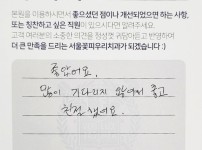 본원을 이용하시면서 좋으셨던 점이나 개선되었으면 하는 사항,
또는 칭찬하고 싶은 직원이 있으시다면 알려주세요.
고객 여러분의 소중한 의견을 정성껏 귀담아듣고 반영하여
더 큰 만족을 드리는 서울꽃피우리치과가 되겠습니다 :)
좋았어요.
많이 기다리지 않아서 좋고
친절했어요.